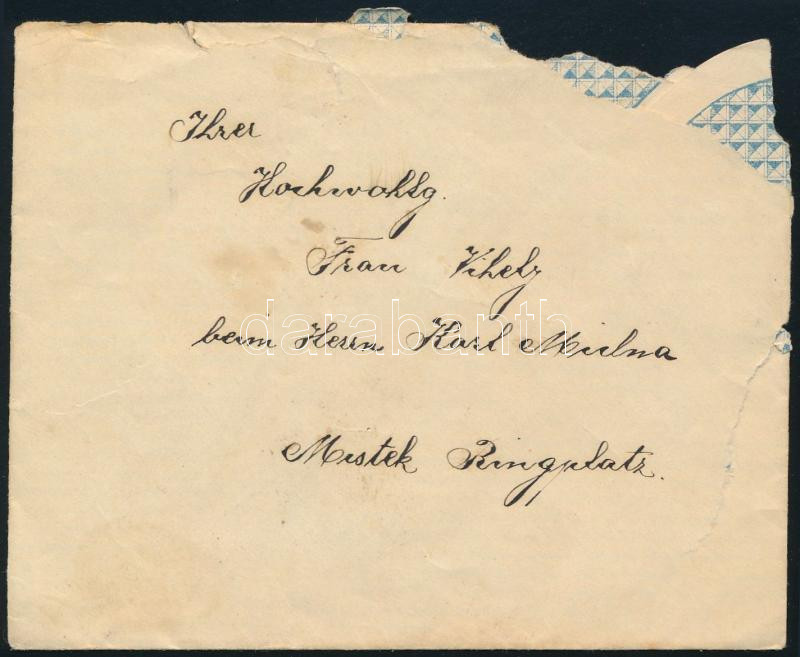 Ihrer
Hochwohlg.
Frau Vihely
beim Herrn Karl Mielna
Mistek Ringplatz.
darabanth